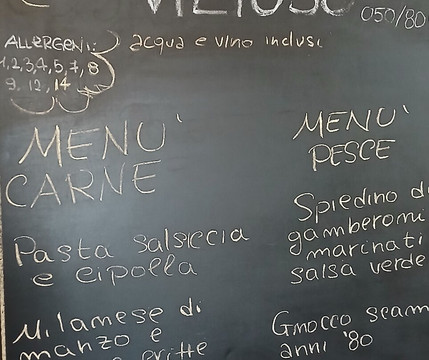 VIZIOSO
050/80
ALLERGENI:
acqua e vino inclusi
1,2,3,4,5,7,8
9, 12, 14
MENU'
CARNE
Pasta salsiccia
e cipolla
Milamese di
manzo e
MENU'
PESCE
Spiedino di
gamberomi
marcinati
salsa verde
Gmocco scam
anni '80